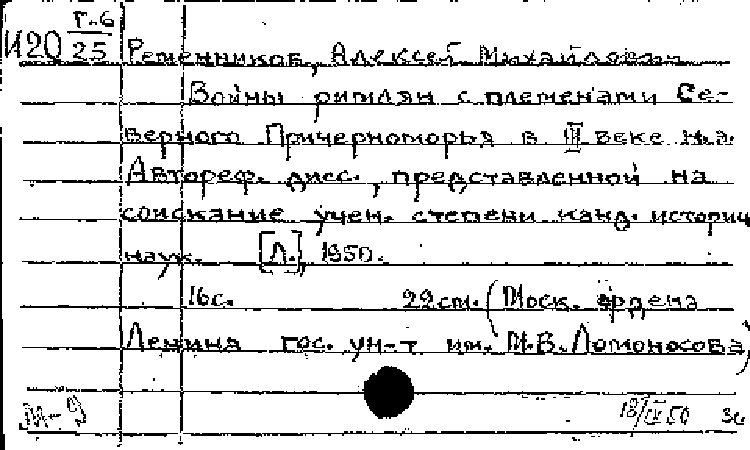 Г-6
И20 25 Ременников, Алексей Михайлович
Войны римлян с племенами Се-
верного Причерноморья в III веке н.э.
Автореф. дисс., представленной на
соискание учен. степени канд. историч
наук. [Л.], 1950.
16с. 22см. (Моск. ордена
Ленина гос. ун-т им. М.В. Ломоносова)
М-9 50 36